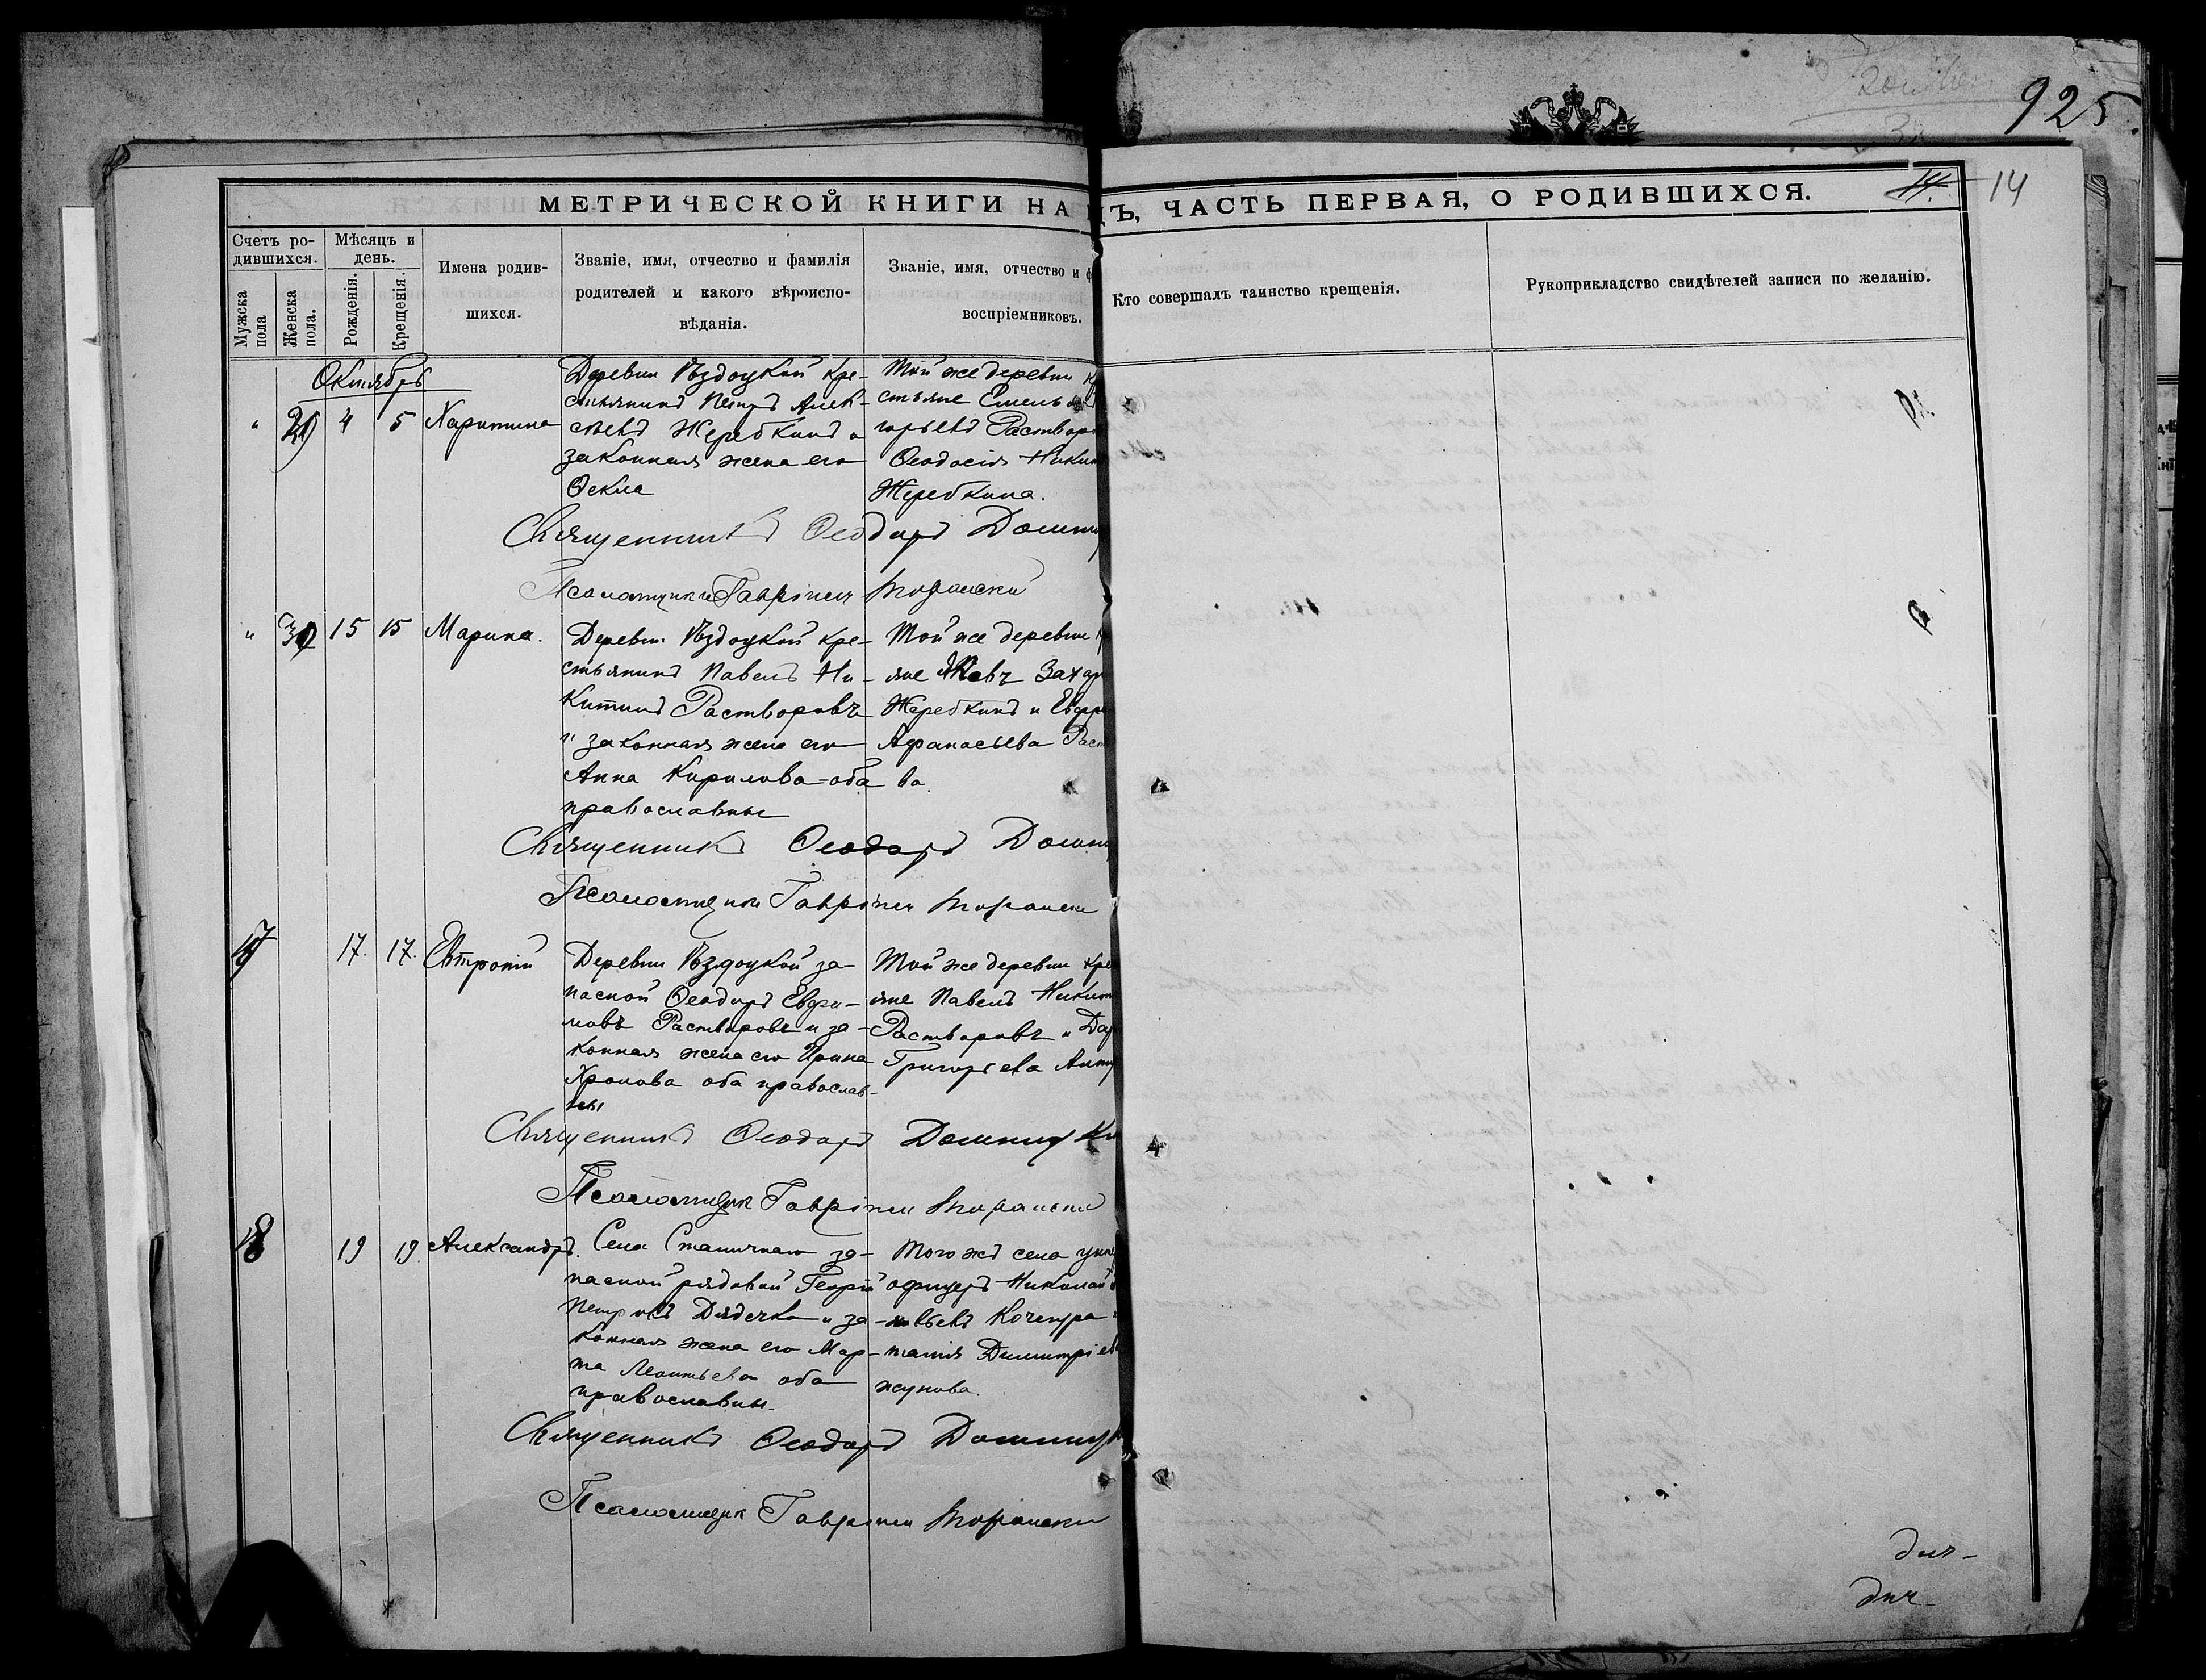 925
МЕТРИЧЕСКОЙ КНИГИ НА
Ъ, ЧАСТЬ ПЕРВАЯ, О РОДИВШИХСЯ.
14
Счетъ ро-
дившихся.
Мужска
пола
Женска
пола.
Мѣсяцъ и
день.
Рожденія.
Крещенія.
Имена родив-
шихся.
Званіе, имя, отчество и фамилія
родителей и какого вѣроиспо-
вѣданія.
Званіе, имя, отчество и ф
воспріемниковъ.
Кто совершалъ таинство крещенія.
Рукоприкладство свидѣтелей записи по желанію.
Октябрь
4 5 Харитина
Деревни Ѣздоцкой кре-
стьянинъ Петръ Алек-
сѣевъ Жеребкинъ и
законная жена его
Ѳекла
Той же деревни к
стьяне Емельянъ
горьевъ Раствор
Ѳеодосія Ники
Жеребкина.
Священникъ Ѳеодоръ
Псаломщикъ Гавріилъ
15 15 Марина.
Деревни Ѣздоцкой кре-
стьянинъ Павелъ Ни-
китинъ Растворовъ
и законная жена его
Анна Кирилова оба
православны
Той же деревни к
яне Яковъ Захар
Жеребкинъ и Евфр
Афанасьева Раст
ва.
Священникъ Ѳеодоръ
Псаломщикъ Гавріилъ
17 17 17. Евтропій
Деревни Ѣздоцкой за-
пасной Ѳеодоръ Евфи-
мовъ Растворовъ и за-
конная жена его Ирина
оба православ-
ны
Той же деревни кре
яне Павелъ Никит
Растворовъ и Дар
Григорьева
Священникъ Ѳеодоръ
Псаломщикъ Гавріилъ
18 19 19 Александръ.
Села Станичнаго за-
пасной рядовой Георгій
Петровъ Дядечко и за-
конная жена его Мар-
та Леонтьева оба
православны.
Того жъ села унте
офицеръ Николай
Кочепура
Димитріев
жунова.
Священникъ Ѳеодоръ
Псаломщикъ Гавріилъ